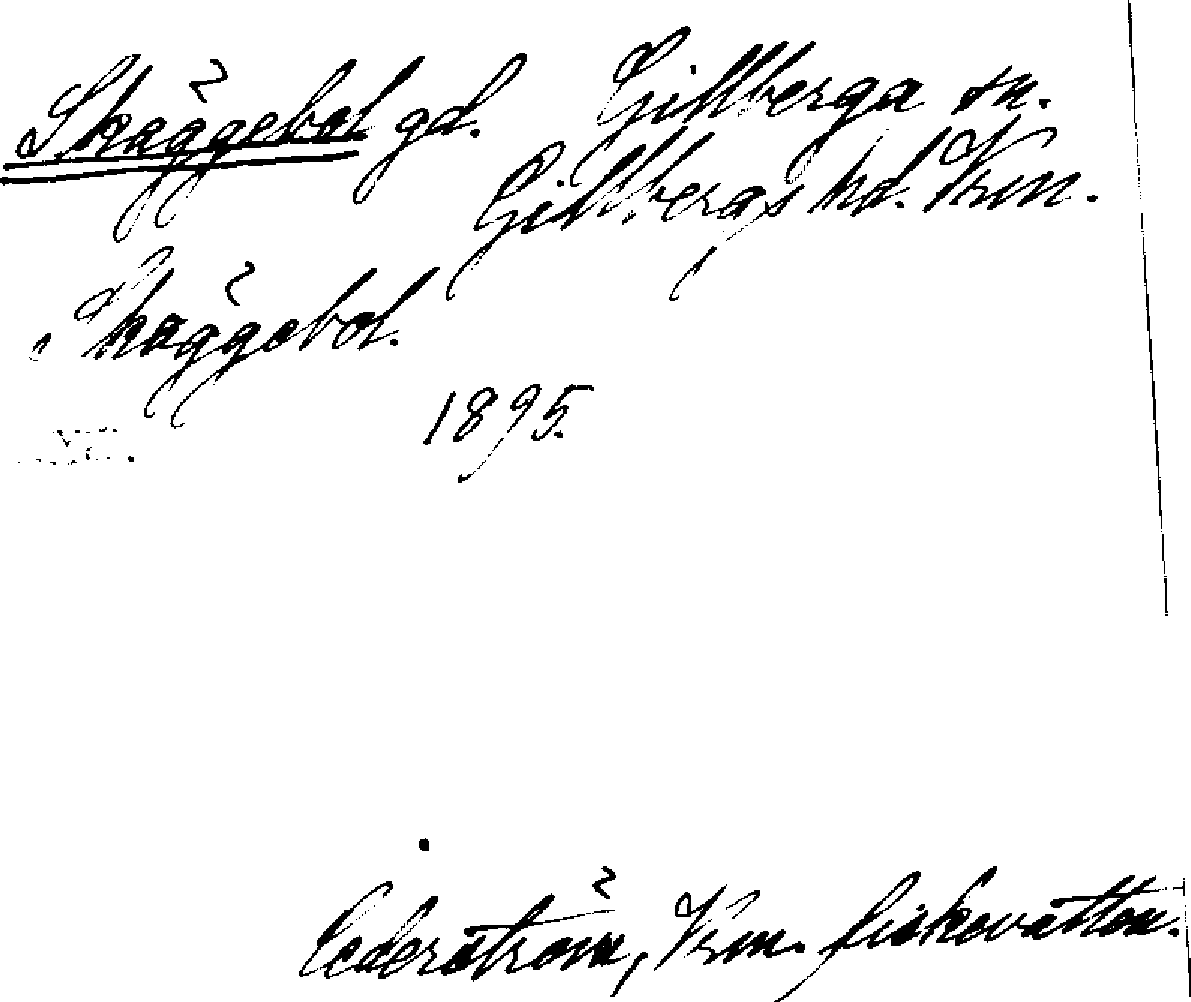 Skäggebol gd. Gillberga sn.
Gillbergs hd. Vrm.
Skäggebol.
1895.
Cederström, Vrm. fiskevatten.